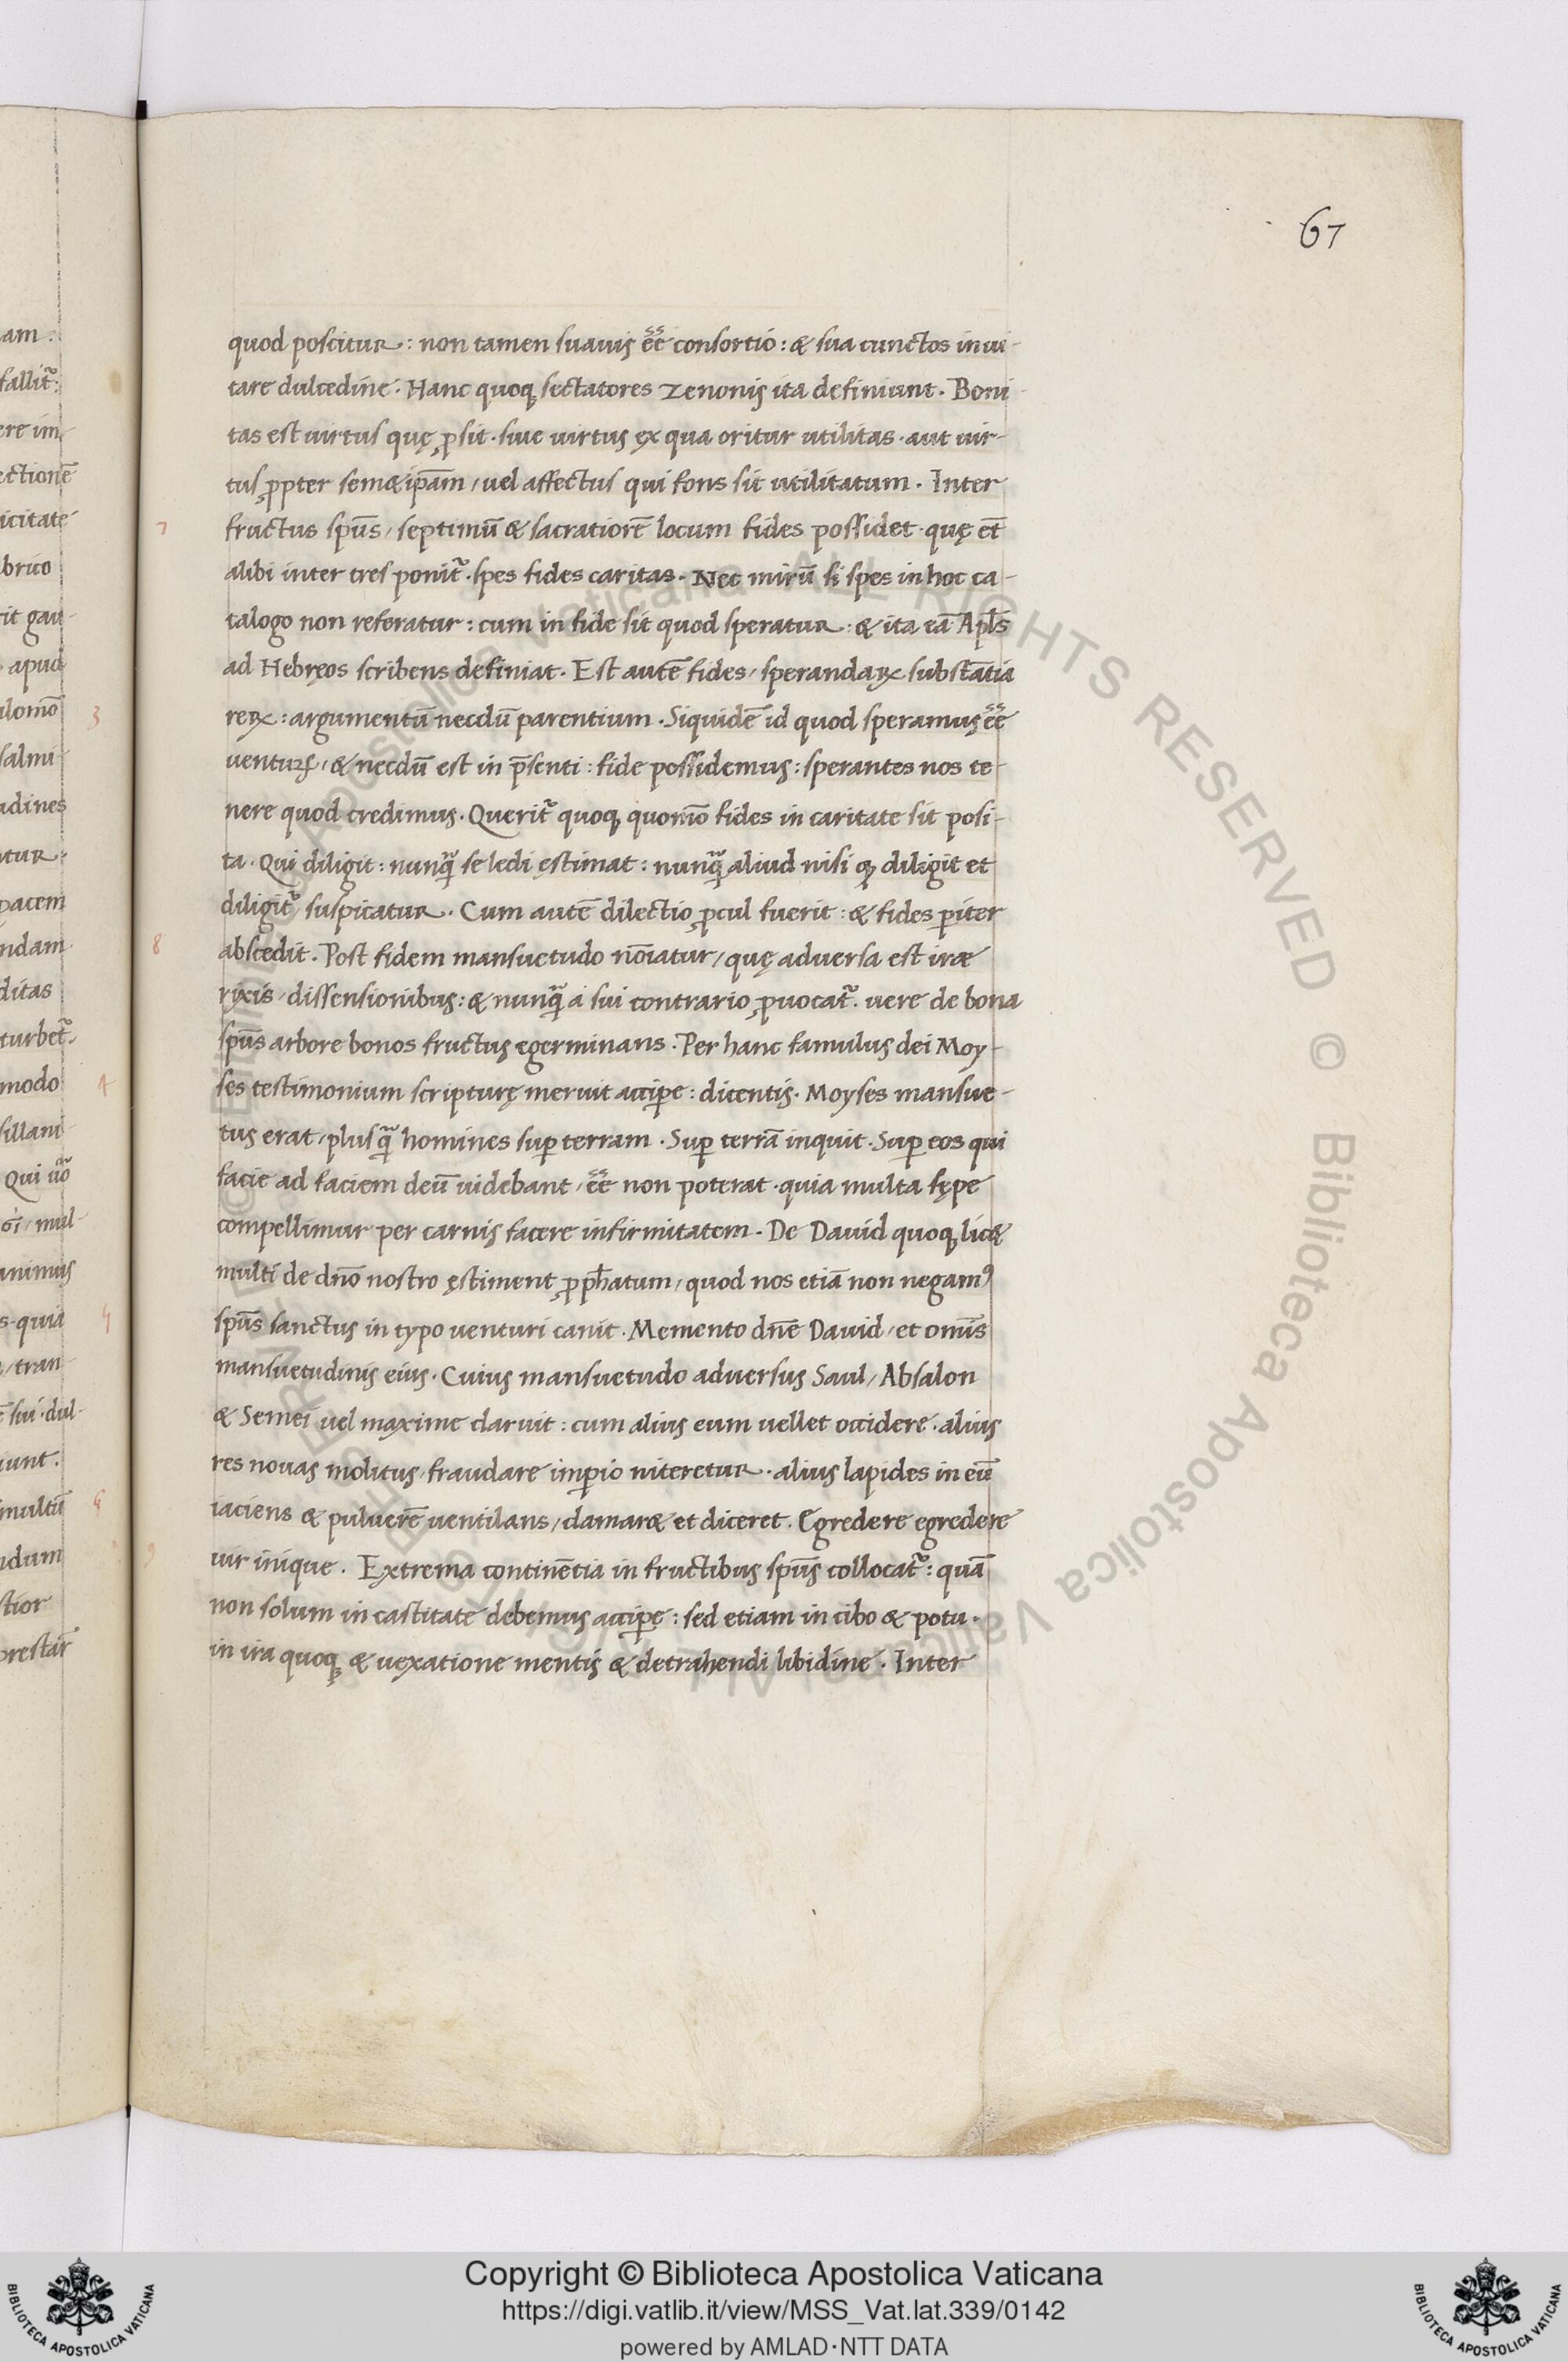 67
quod poscitur: non tamen suauis ee͂ consortio: & sua cunctos inui-
tare dulcedine. Hanc quoq; sectatores Zenonis ita definiunt. Boni-
tas est uirtus quę ꝓsit. siue uirtus ex qua oritur utilitas. aut uir-
tus ꝓpter sem&ip̄am, uel affectus qui fons sit utilitatum. Inter
7 fructus sp̄us, septimū & sacratiorē locum fides possidet. quę et̄
alibi inter tres ponit᷑. spes fides caritas. Nec mirū si spes in hoc ca-
talogo non referatur: cum in fide sit quod speratur: & ita eā Apl̄s
ad Hebręos scribens definiat. Est autē fides, sperandaꝝ substātia
reꝝ: argumentū necdū parentium. Siquidē id quod speramus ee͂
uenturū, & necdū est in p̄senti: fide possidemus: sperantes nos te-
nere quod credimus. Querit᷑ quoq; quom̄o fides in caritate sit posi-
ta. Qui diligit: nunqᷓ se ledi ęstimat: nunqᷓ aliud nisi ꝙ diligit et
diligit᷑ suspicatur. Cum autē dilectio ꝓcul fuerit: & fides ꝑiter
8 abscedit. Post fidem mansuetudo no͞iatur, quę aduersa est iræ
rixis, dissensionibus: & nunqᷓ a sui contrario ꝓuocat᷑. uere de bona
sp̄us arbore bonos fructus egerminans. Per hanc famulus dei Moy-
ses testimonium scripturę meruit acciꝑe: dicentis. Moyses mansue-
tus erat, plusqᷓ homines suꝑ terram. Suꝑ terrā inquit. Suꝑ eos qui
facie ad faciem deū uidebant, ee͂ non poterat. quia multa sępe
compellimur per carnis facere infirmitatem. De Dauid quoq; lic&
multi de dn̄o nostro ęstiment ꝓph̄atum, quod nos etiā non negamꝰ
sp̄us sanctus in typo uenturi canit. Memento dn̄e Dauid, et omīs
mansuetudinis eius. Cuius mansuetudo aduersus Saul, Absalon
& Semei uel maxime claruit: cum alius eum uellet occidere. alius
res nouas molitus, fraudare imꝑio niteretur. alius lapides in eū
iaciens & puluerē uentilans, clamar& et diceret. Egredere egredere
9 uir inique. Extrema continētia in fructibus sp̄us collocat᷑: quā
non solum in castitate debemus acciꝑe: sed etiam in cibo & potu.
in ira quoq; & uexatione mentis & detrahendi libidine. Inter
Copyright © Biblioteca Apostolica Vaticana
https://digi.vatlib.it/view/MSS_Vat.lat.339/0142
powered by AMLAD·NTT DATA